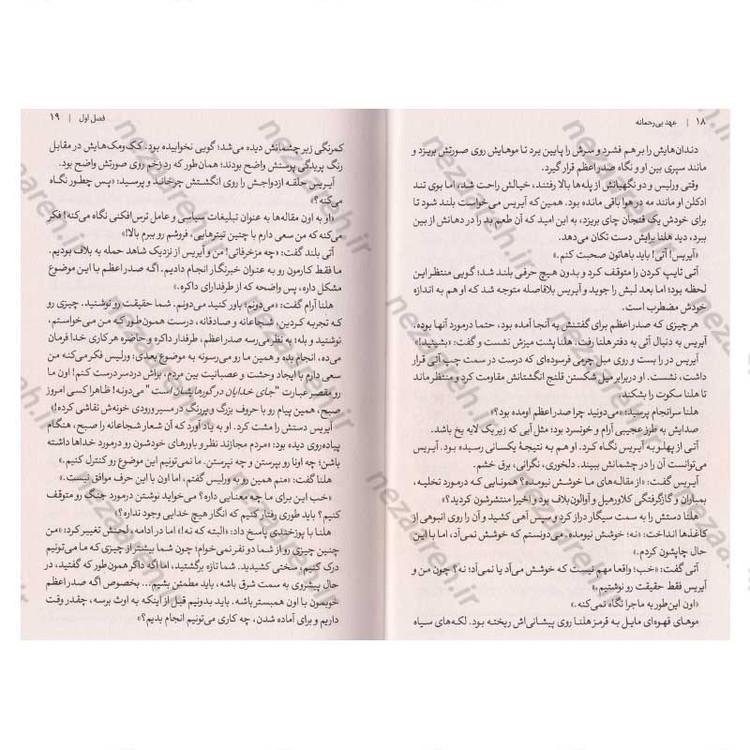 ۱۸ | عهد بی‌رحمانه
دندان‌هایش را بر هم فشرد و سرش را پایین برد تا موهایش روی صورتش بریزد و
مانند سپری بین او و نگاه صدراعظم قرار گیرد.
وقتی ورلیس و دو نگهبانش از پله‌ها بالا رفتند، خیالش راحت شد، اما بوی تند
ادکلن او مانند مه در هوا باقی مانده بود. همین که آیریس می‌خواست بلند شود تا
برای خودش یک فنجان چای بریزد، به این امید که آن طعم بد را در دهانش از بین
ببرد، دید هلنا برایش دست تکان می‌دهد.
«آیریس! آتی! باید باهاتون صحبت کنم.»
آتی تایپ کردن را متوقف کرد و بدون هیچ حرفی بلند شد؛ گویی منتظر این
لحظه بود؛ اما بعد لبش را جوید و آیریس بلافاصله متوجه شد که او هم به اندازه
خودش مضطرب است.
هر چیزی که صدراعظم برای گفتنش به آنجا آمده بود، حتما درمورد آنها بوده.
آیریس به دنبال آتی به دفتر هلنا رفت. هلنا پشت میزش نشست و گفت: «بشینید!»
آیریس در را بست و روی مبل چرمی فرسوده‌ای که درست در سمت چپ آتی قرار
داشت، نشست. او دربرابر میل شکستن قلنج انگشتانش مقاومت کرد و منتظر ماند
تا هلنا سکوت را بشکند.
هلنا سرانجام پرسید: «می‌دونید چرا صدراعظم اومده بود؟»
صدایش به طرز عجیبی آرام و خونسرد بود؛ مثل آبی که زیر یک لایه یخ باشد.
آتی از پهلو به آیریس نگاه کرد. او هم به نتیجهٔ یکسانی رسیده بود. آیریس
می‌توانست آن را در چشمانش ببیند. دلخوری، نگرانی، برق خشم.
آیریس گفت: «از مقاله‌های ما خوشش نیومده؟ همونایی که درمورد تخلیه،
بمباران و گازگرفتگی کلاورهیل و آوالون‌بلاف بود و اخیرا منتشرشون کردید؟»
هلنا دستش را به سمت سیگار دراز کرد و سپس آهی کشید و آن را روی انبوهی از
کاغذها انداخت: «نه؛ خوشش نیومده. می‌دونستم که خوشش نمی‌آد، اما با این
حال چاپشون کردم.»
آتی گفت: «خب؛ واقعا مهم نیست که خوشش می‌آد یا نمی‌آد؛ نه؟ چون من و
آیریس فقط حقیقت رو نوشتیم.»
«اون این‌طور به ماجرا نگاه نمی‌کنه.»
موهای قهوه‌ای مایل به قرمز هلنا روی پیشانی‌اش ریخته بود. لکه‌های سیاه
فصل اول | ۱۹
کمرنگی زیر چشمانش دیده می‌شد؛ گویی نخوابیده بود. کک‌ومک‌هایش در مقابل
رنگ پریدگی پوستش واضح بودند؛ همان‌طور که رد زخم روی صورتش واضح بود.
آیریس حلقه ازدواجش را روی انگشتش چرخاند و پرسید: «پس چطور نگاه
می‌کنه؟»
«او به اون مقاله‌ها به عنوان تبلیغات سیاسی و عامل ترس‌افکنی نگاه می‌کنه! فکر
می‌کنه که من سعی دارم با چنین تیترهایی، فروشم رو ببرم بالا!»
آتی بلند گفت: «چه مزخرفاتی! من و آیریس از نزدیک شاهد حمله به بلاف بودیم.
ما فقط کارمون رو به عنوان خبرنگار انجام دادیم. اگه صدراعظم با این موضوع
مشکل داره، پس واضحه که از طرفدارای داکره.»
هلنا آرام گفت: «می‌دونم؛ باور کنید می‌دونم. شما حقیقت رو نوشتید. چیزی رو
که تجربه کردین، شجاعانه و صادقانه، درست همون‌طور که من می‌خواستم،
نوشتید و بله؛ به نظر می‌رسه صدراعظم، طرفدار داکره و حاضره هر کاری خدا فرمان
می‌ده، انجام بده و همین ما رو می‌رسونه به موضوع بعدی: ورلیس فکر می‌کنه من
سعی دارم با ایجاد وحشت و عصبانیت بین مردم، براش دردسر درست کنم! اون ما
رو مقصر عبارت "جای خدایان در گورهایشان است" می‌دونه! ظاهرا کسی امروز
صبح، همین پیام رو با حروف بزرگ و پررنگ در مسیر ورودی خونه‌ش نقاشی کرده!»
آیریس دستش را مشت کرد. او به یاد آورد که آن شعار شجاعانه را صبح، هنگام
پیاده‌روی دیده بود: «مردم مجازند نظر و باورهای خودشون رو درمورد خداها داشته
باشن؛ چه اونا رو بپرستن و چه نپرستن. ما نمی‌تونیم این موضوع رو کنترل کنیم.»
هلنا گفت: «منم همین رو به ورلیس گفتم، اما اون با این حرف موافق نیست.»
«خب این برای ما چه معنایی داره؟ می‌خواید نوشتن درمورد جنگ رو متوقف
کنیم؟ باید طوری رفتار کنیم که انگار هیچ خدایی وجود نداره؟»
هلنا با پوزخندی پاسخ داد: «البته که نه!» اما در ادامه، لحنش تغییر کرد: «من
چنین چیزی رو از شما دو نفر نمی‌خوام؛ چون شما بیشتر از چیزی که ما می‌تونیم
درک کنیم، سختی کشیدید. شما تازه برگشتید، اما اگه داکر همون‌طور که گفتید، در
حال پیشروی به سمت شرق باشه، باید مطمئن بشیم... بخصوص اگه صدراعظم
خودمون با اون همبستر باشه. باید بدونیم قبل از اینکه به اوث برسه، چقدر وقت
داریم و برای آماده شدن، چه کاری می‌تونیم انجام بدیم؟»
nezareh.ir